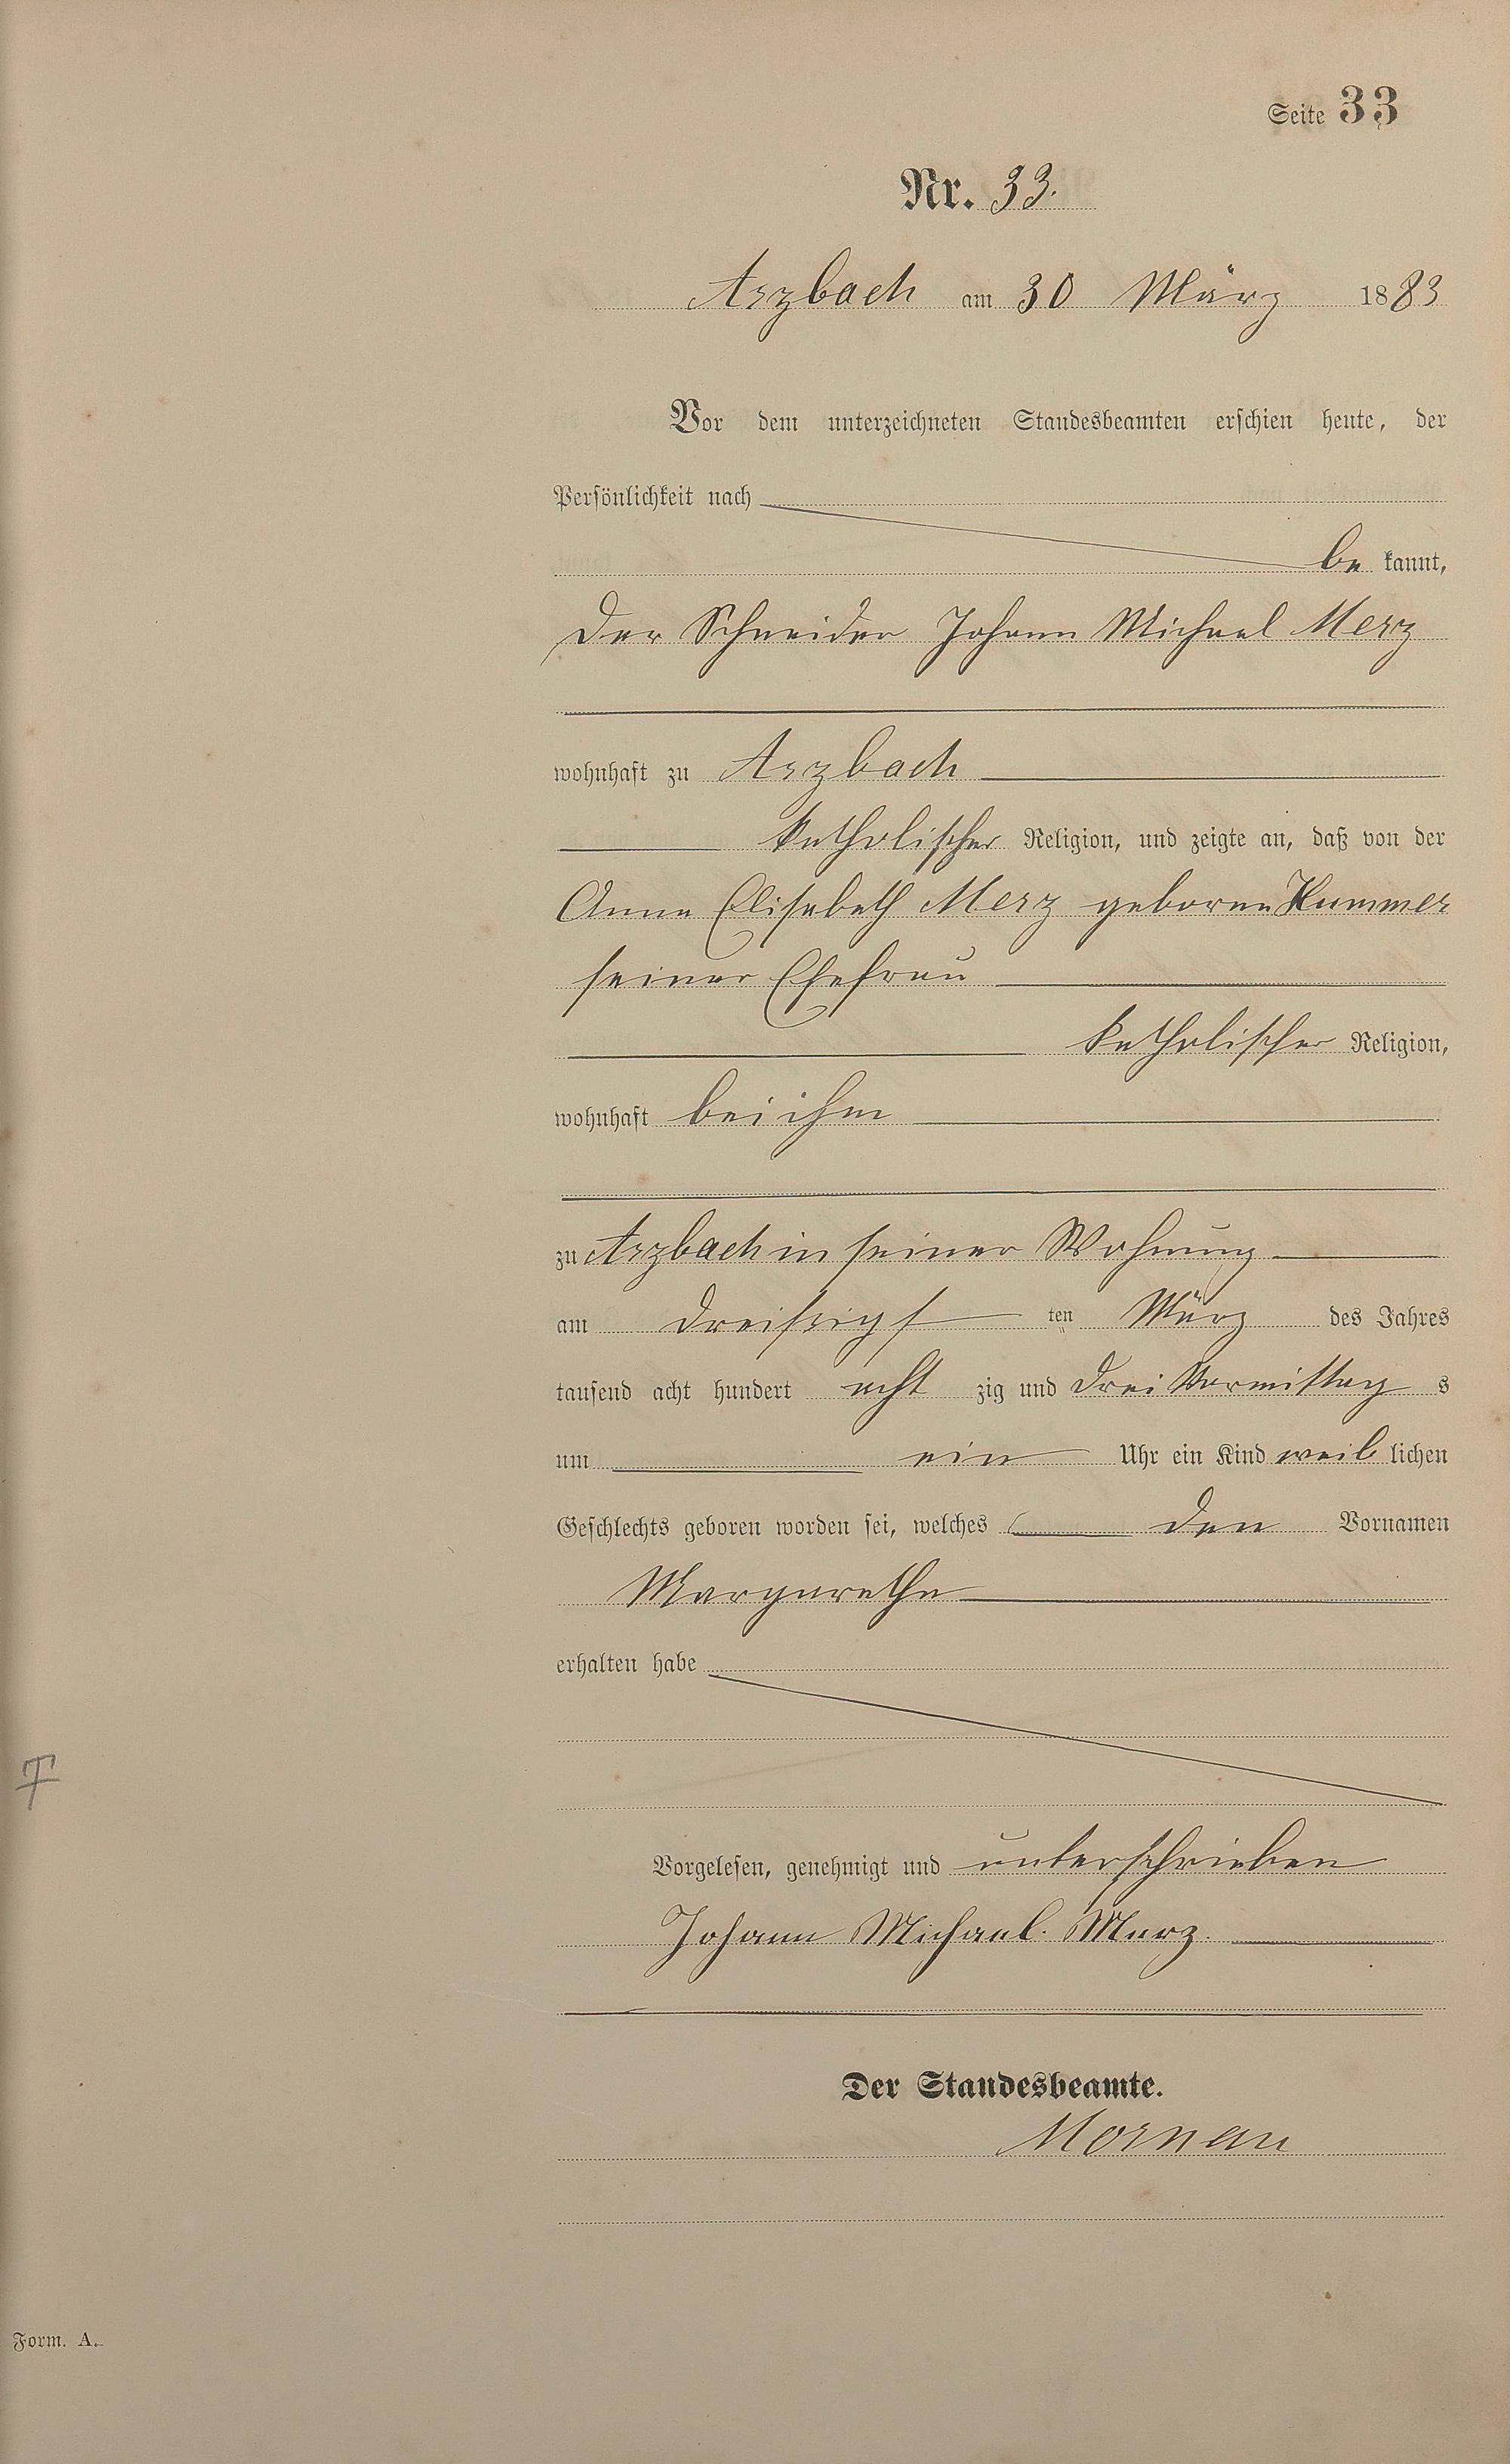 Seite 33
Nr. 33.
Arzbach am 30 März 1883
Vor dem unterzeichneten Standesbeamten erschien heute, der
Persönlichkeit nach
be kannt,
der Schneider Johann Michael Merz
wohnhaft zu Arzbach
katholischer Religion, und zeigte an, daß von der
Anna Elisabeth Merz geborne Kummer
seiner Ehefrau
katholischer Religion,
wohnhaft bei ihm
zu Arzbach in seiner Wohnung
am dreißigst ten März des Jahres
tausend acht hundert acht zig und drei Vormittag s
um ein Uhr ein Kind weib lichen
Geschlechts geboren worden sei, welches den Vornamen
Margarethe
erhalten habe
Vorgelesen, genehmigt und unterschrieben
Johann Michael. Merz.
Der Standesbeamte.
Mornau
Form. A.